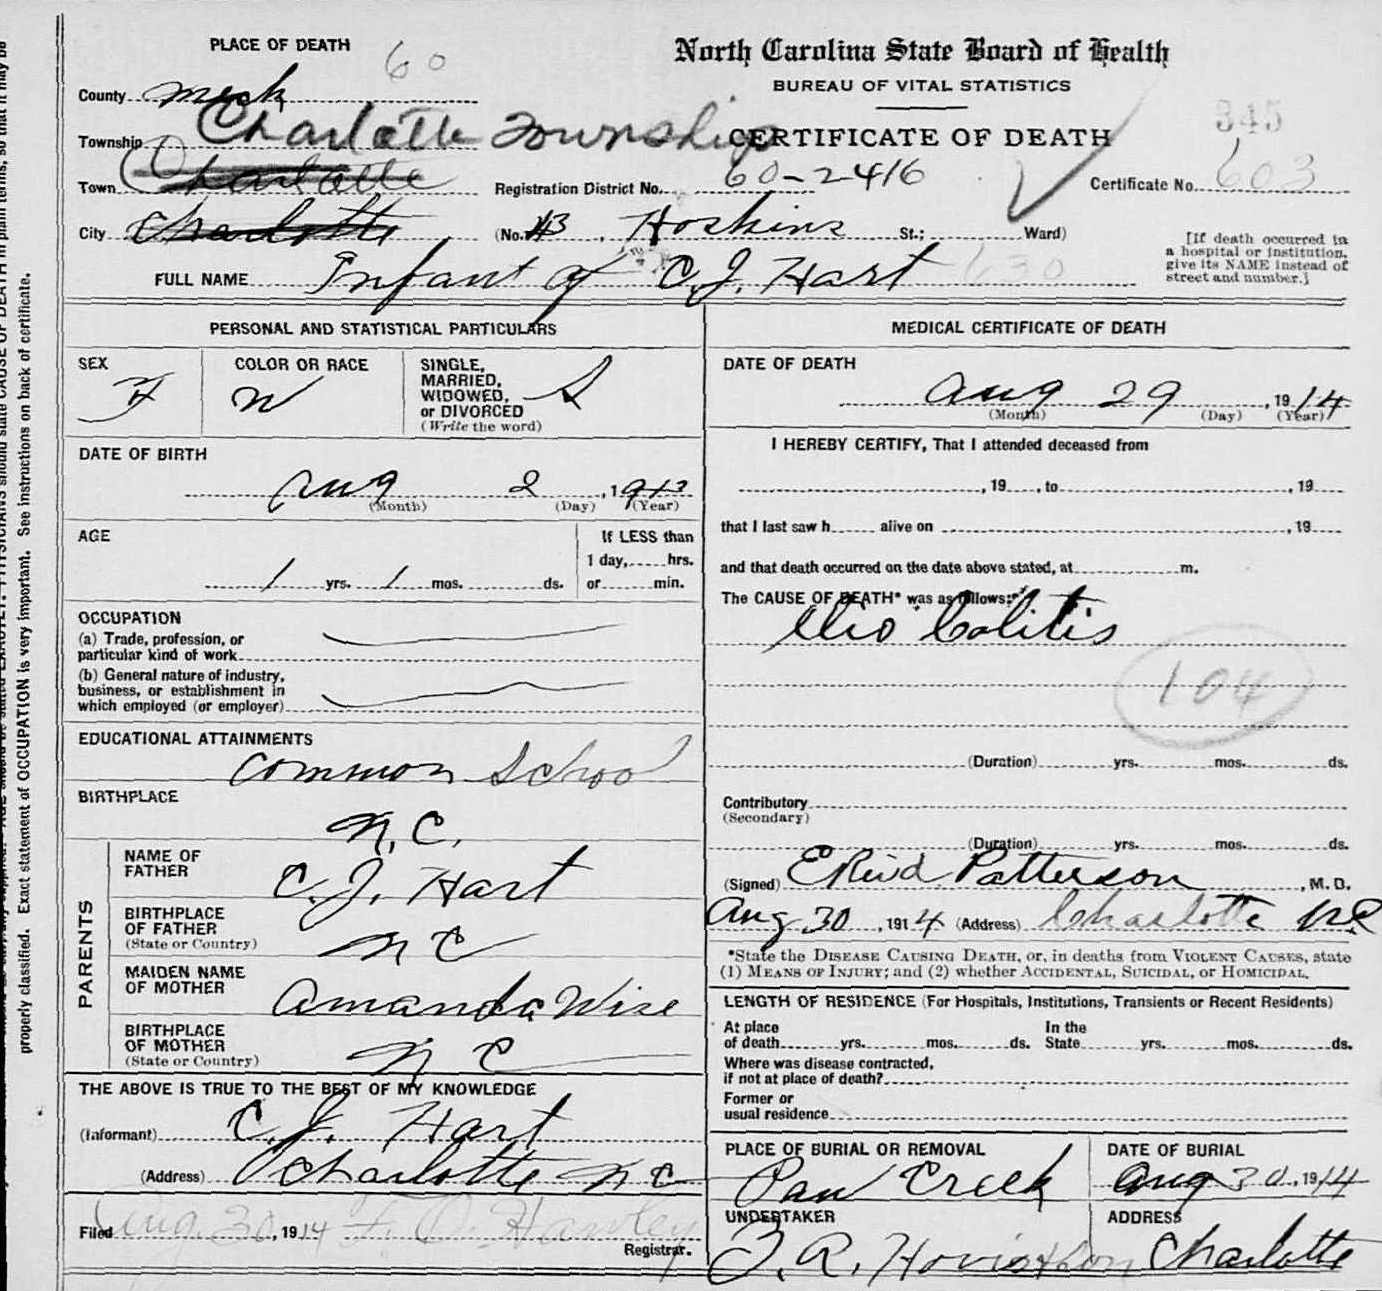 PLACE OF DEATH 60
County Meck
Township Charlotte Township
Town Charlotte
City Charlotte
North Carolina State Board of Health
BUREAU OF VITAL STATISTICS
CERTIFICATE OF DEATH
345
Registration District No. 60-2416
Certificate No. 603
(No. 43, Hoskins St.; Ward)
[If death occurred in
a hospital or institution,
give its NAME instead of
street and number.]
FULL NAME Infant of C. J. Hart 630
PERSONAL AND STATISTICAL PARTICULARS
SEX
F
COLOR OR RACE
W
SINGLE,
MARRIED,
WIDOWED,
or DIVORCED
(Write the word)
S
DATE OF BIRTH
Aug 2, 1913
(Month) (Day) (Year)
AGE
1 yrs. 1 mos. ds.
If LESS than
1 day, hrs.
or min.
OCCUPATION
(a) Trade, profession, or
particular kind of work
(b) General nature of industry,
business, or establishment in
which employed (or employer)
EDUCATIONAL ATTAINMENTS
Common School
BIRTHPLACE
N.C.
PARENTS
NAME OF
FATHER
C. J. Hart
BIRTHPLACE
OF FATHER
(State or Country)
N C
MAIDEN NAME
OF MOTHER
Amanda Wise
BIRTHPLACE
OF MOTHER
(State or Country)
N C
THE ABOVE IS TRUE TO THE BEST OF MY KNOWLEDGE
(Informant) C. J. Hart
(Address) Charlotte N C
Filed Aug. 30, 1914 F. O. Hawley
Registrar.
MEDICAL CERTIFICATE OF DEATH
DATE OF DEATH
Aug 29, 1914
(Month) (Day) (Year)
I HEREBY CERTIFY, That I attended deceased from
, 19 , to , 19
that I last saw h alive on , 19
and that death occurred on the date above stated, at m.
The CAUSE OF DEATH* was as follows:*
Ileo Colitis
104
(Duration) yrs. mos. ds.
Contributory
(Secondary)
(Duration) yrs. mos. ds.
(Signed) E Reid Patterson, M. D.
Aug 30, 1914 (Address) Charlotte NC
*State the DISEASE CAUSING DEATH, or, in deaths from VIOLENT CAUSES, state
(1) MEANS OF INJURY; and (2) whether ACCIDENTAL, SUICIDAL, or HOMICIDAL.
LENGTH OF RESIDENCE (For Hospitals, Institutions, Transients or Recent Residents)
At place
of death yrs. mos. ds.
In the
State yrs. mos. ds.
Where was disease contracted,
if not at place of death?
Former or
usual residence
PLACE OF BURIAL OR REMOVAL
Paw Creek
DATE OF BURIAL
Aug 30, 1914
UNDERTAKER
Z. A. Hovis
ADDRESS
Charlotte
properly classified. Exact statement of OCCUPATION is very important. See instructions on back of certificate.